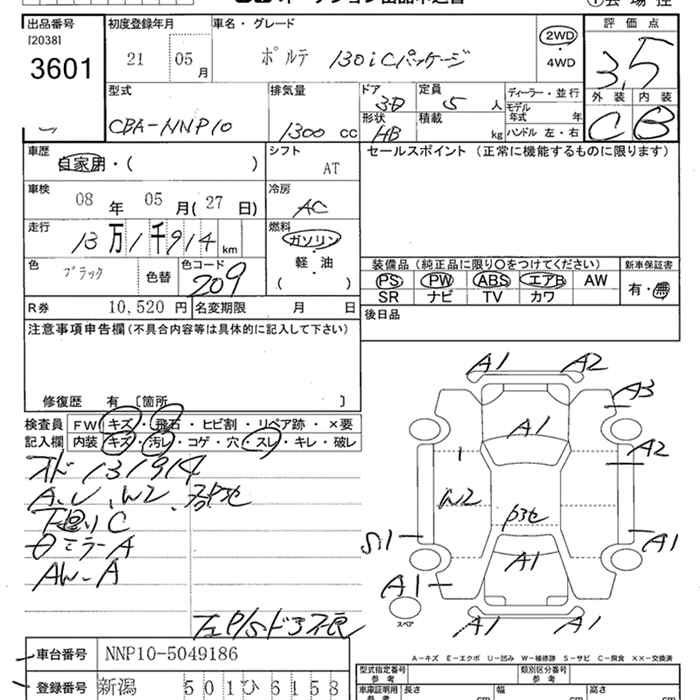 出品番号 初度登録年月 車名・グレード 評価点
[2038]
3601
21 05月 ポルテ 130iCパッケージ 2WD ・ 4WD 3.5
外装 内装
C B
型式 排気量 ドア 定員 ディーラー・並行
CBA-NNP10 1300 cc 3D 5 人 モデル年式 年
形状 積載
HB kg ハンドル 左・右
車歴 シフト セールスポイント (正常に機能するものに限ります)
自家用・( ) AT
車検 冷房
08 年 05 月 (27 日) AC
走行 燃料
13万1千914 km ガソリン
軽・油
( )
色 ブラック 色替 色コード 209
装備品 (純正品に限り○をつけてください) 新車保証書
PS PW ABS エアB AW 有・無
SR ナビ TV カワ
R券 10,520 円 名変期限 月 日
後日品
注意事項申告欄 (不具合内容等は具体的に記入して下さい)
修復歴 有 [箇所 ]
検査員 FW キズ・飛石・ヒビ割・リペア跡・×要
記入欄 内装 キズ・汚レ・コゲ・穴・スレ・キレ・破レ
131914
A.U.W2.
C
ミラーA
AW-A
A1 A2
A3
A1
A2
W2
S1 A1
A1
A1
スペア
A1 A1
A-キズ E-エクボ U-凹み W-補修跡 S-サビ C-腐食 ××-交換済
車台番号 NNP10-5049186
登録番号 新潟 501ひ6158
型式指定番号 参考 類別区分番号 参考
車庫証明用 参考 長さ cm 幅 cm 高さ cm